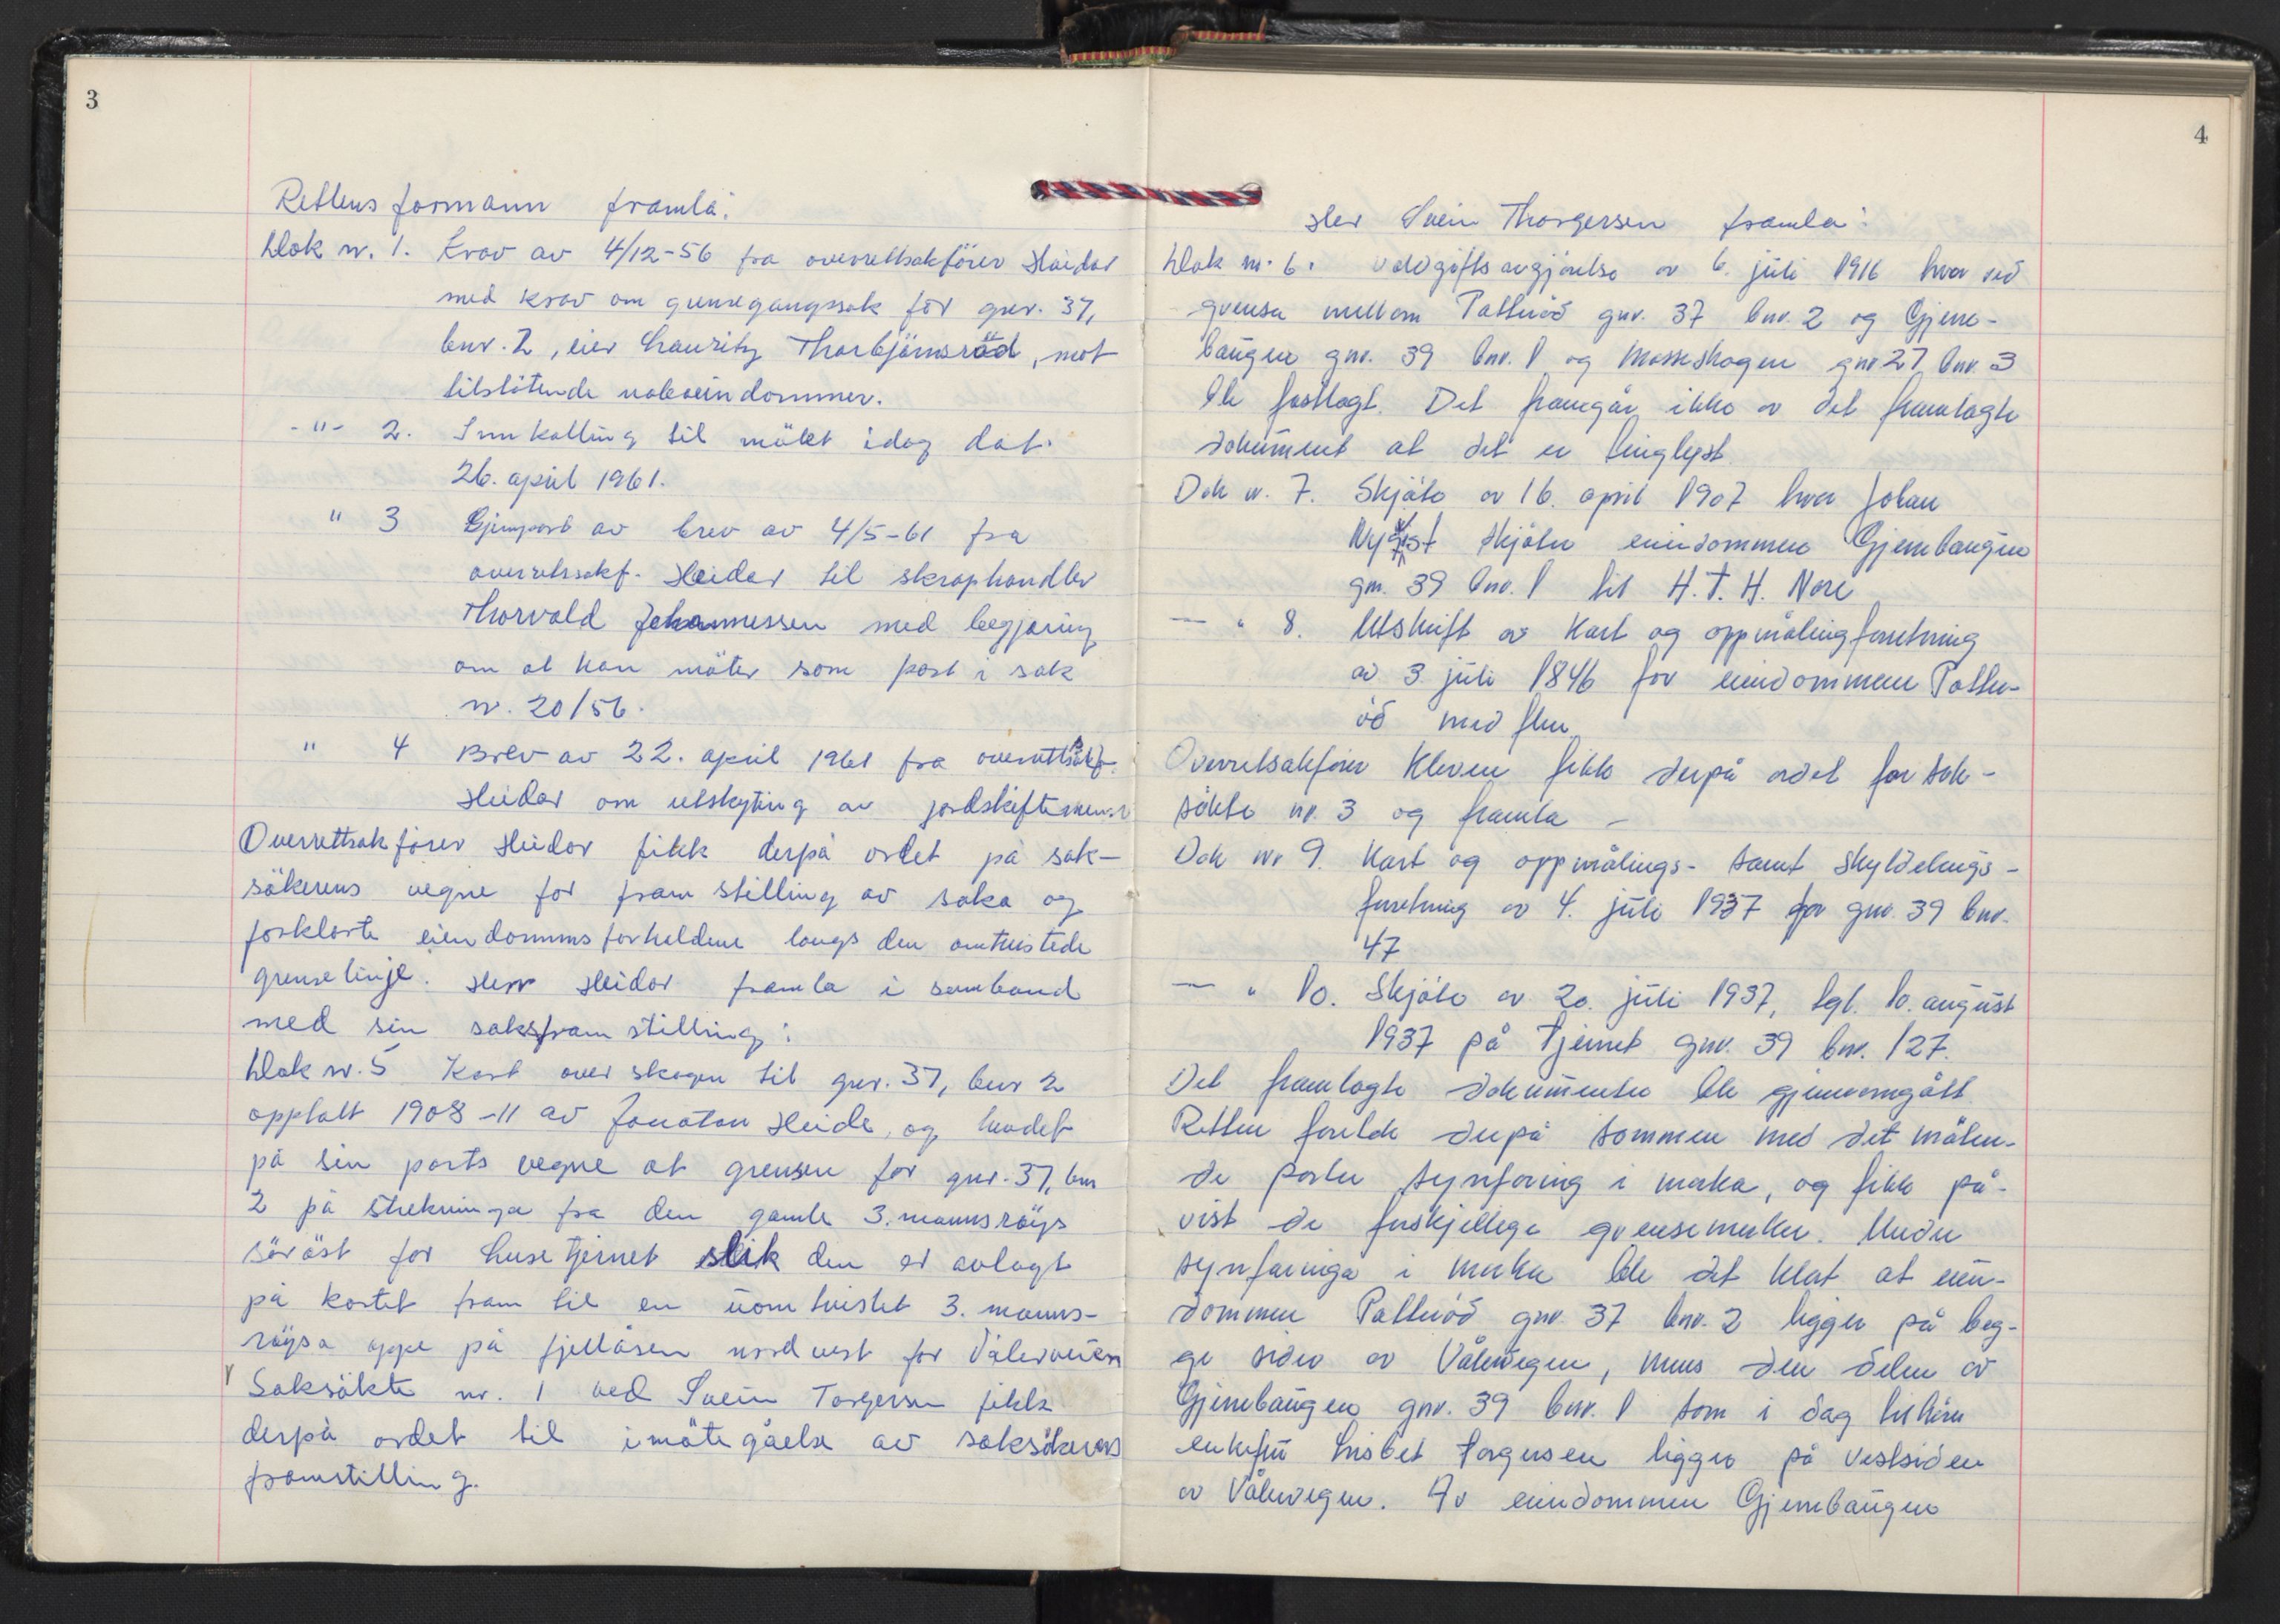 3
Rettens formann framla:
Dok nr. 1. Krav av 4/12-56 fra overrettsakförer Heider
med krav om grensegangssak for gnr. 37,
bnr. 2, eier Lauritz Thorbjörnsröd, mot
tilstötende naboeiendommer.
-"- 2. Innkalling til mötet idag dat.
26. april 1961.
" 3 Gjenpart av brev av 4/5-61 fra
overretssakf. Heider til skraphandler
Thorvald Johannessen med begjæring
om at han möter som part i sak
nr. 20/56.
" 4 Brev av 22. april 1961 fra overrettsakf.
Heider om utskyting av jordskiftemenn
Overrettsakförer Heider fikk derpå ordet på sak-
sökerens vegne for framstilling av saka og
forklarte eiendommsforholdene langs den omtvistede
grenselinje. Herr Heider framla i samband
med sin saksframstilling:
Dok nr. 5 Kart over skogen til gnr. 37, bnr 2
opptatt 1908-11 av Jonatan Heide, og hevdet
på sin parts vegne at grensen for gnr. 37, bnr
2 på strekninga fra den gamle 3. mannsröys
söröst for Lusetjernet slik den er avlagt
på kartet fram til en uomtvistet 3. manns-
röysa oppe på fjellåsen nordvest for Vålerveien
Saksökte nr. 1 ved Svein Torgersen fikk
derpå ordet til imötegåelse av saksökerens
framstilling.
4
Her Svein Thorgersen framla:
Dok nr. 6. Voldgiftsavgjörelse av 6. juli 1916 hvor ved
grensa mellom Patteröd gnr. 37 bnr. 2 og Gjerre-
baugen gnr. 39 bnr. 1 og Mosseskogen gnr 27 bnr. 3
ble fastlagt. Det framgår ikke av det framlagte
dokument at det er tinglyst.
Dok nr. 7. Skjöte av 16. april 1907 hvor Johan
Nyqist skjöter eiendommen Gjerrebaugen
gnr. 39 bnr. 1 til H. T. H. Nore
— " 8. Utskrift av Kart og oppmålingforretning
av 3 juli 1846 for eiendommen Patter-
öd med flere
Overretsakförer Kleven fikk derpå ordet for sak-
sökte nr. 3 og framla –
Dok nr 9. Kart og oppmålings- samt skyldelings-
forretning av 4. juli 1937 for gnr. 39 bnr.
47
— " 10. Skjöte av 20. juli 1937, tgl. 10. august
1937 på Tjernet gnr. 39 bnr. 127.
Det framlagte dokumenter ble gjennomgått.
Retten foretok derpå sammen med det möten-
de parter synfaring i marka, og fikk på-
vist de forskjellige grensemerker. Under
synfaringa i marka ble det klart at eien-
dommen Patteröd gnr. 37 bnr. 2 ligger på beg-
ge sider av Vålervegen, mens den delen av
Gjerrebaugen gnr. 39 bnr. 1 som i dag tilhörer
enkefru Lisbet Torgersen ligger på vestsiden
av Vålervegen. Av eiendommen Gjerrebaugen